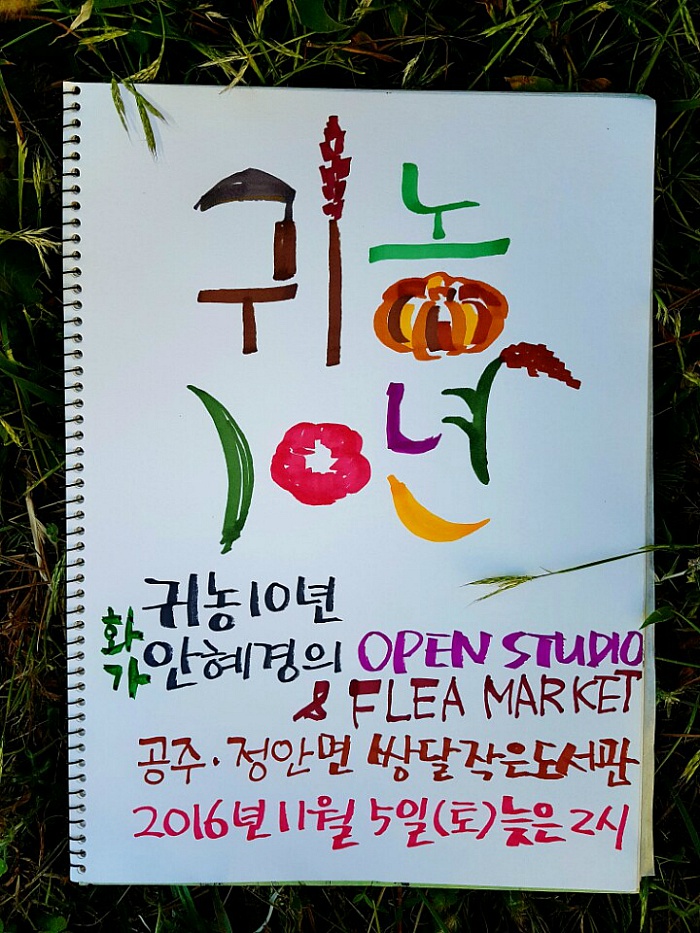 귀농
10년
귀농10년
화가 안혜경의 OPEN STUDIO
& FLEA MARKET
공주·정안면 쌍달작은도서관
2016년 11월 5일(토)늦은2시